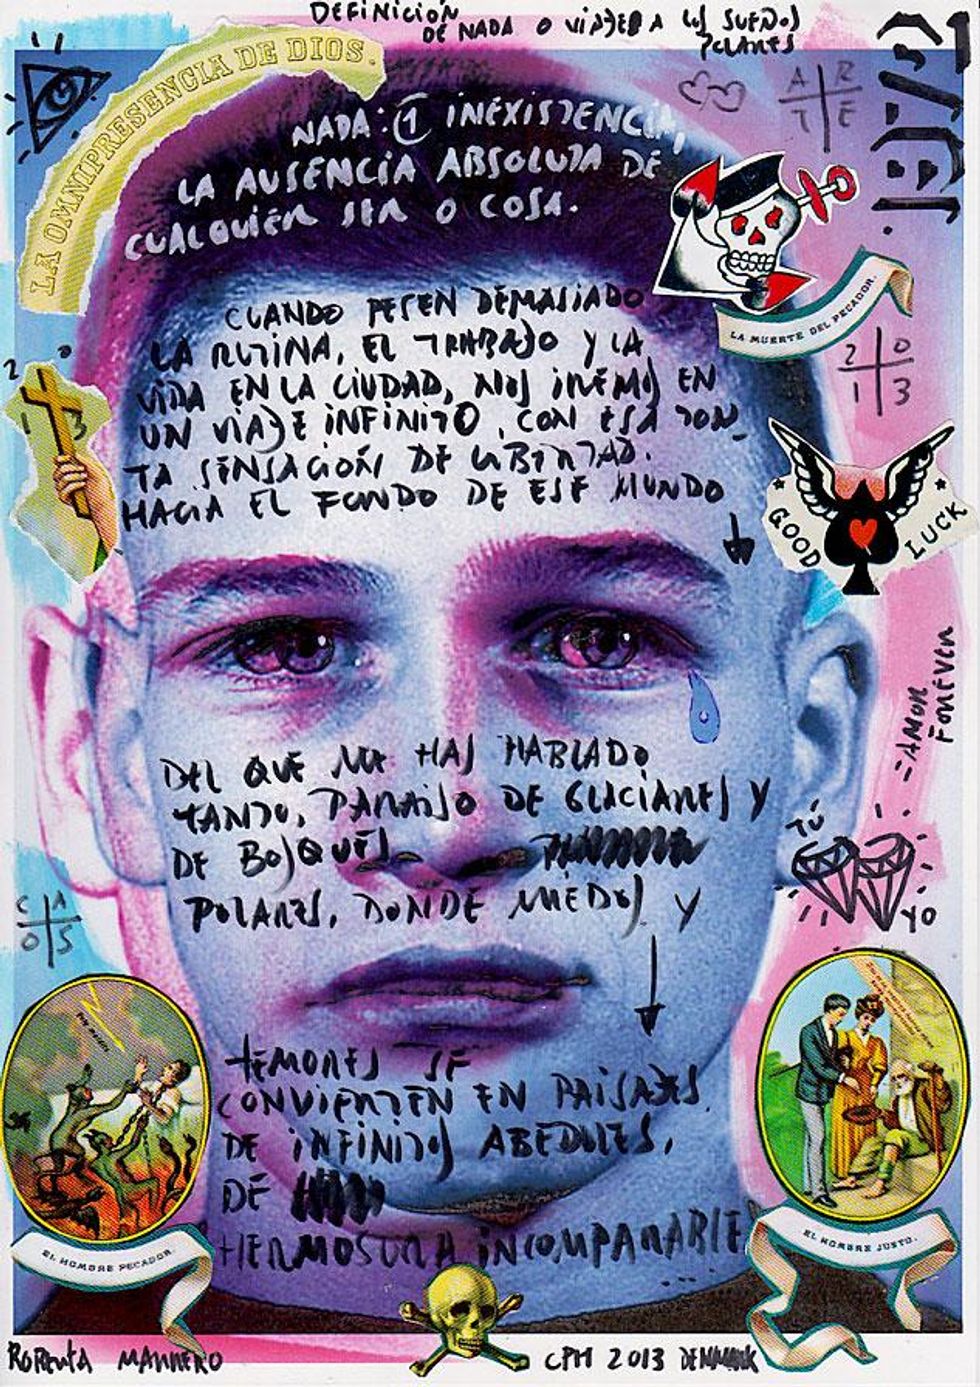 DEFINICIÓN
DE NADA O VIAJES A LOS SUEÑOS
POLARES
LA OMNIPRESENCIA DE DIOS.
A R
T E
NADA: 1 INEXISTENCIA,
LA AUSENCIA ABSOLUTA DE
CUALQUIER SER O COSA.
LA MUERTE DEL PECADOR.
2 0
1 3
2 0
1 3
CUANDO PESEN DEMASIADO
LA RUTINA, EL TRABAJO Y LA
VIDA EN LA CIUDAD, NOS IREMOS EN
UN VIAJE INFINITO, CON ESA TON
TA SENSACIÓN DE LIBERTAD.
HACIA EL FONDO DE ESE MUNDO
GOOD LUCK
AMOR
FOREVER
DEL QUE ME HAS HABLADO
TANTO, PARAISO DE GLACIARES Y
DE BOSQUES
POLARES, DONDE MIEDOS Y
TÚ
YO
C A
O S
TEMORES SE
CONVIERTEN EN PAISAJES
DE INFINITOS ABEDULES,
DE
HERMOSURA INCOMPARABLE
EL HOMBRE PECADOR
EL HOMBRE JUSTO.
ROBERTA MARRERO
CPH 2013 DENMARK